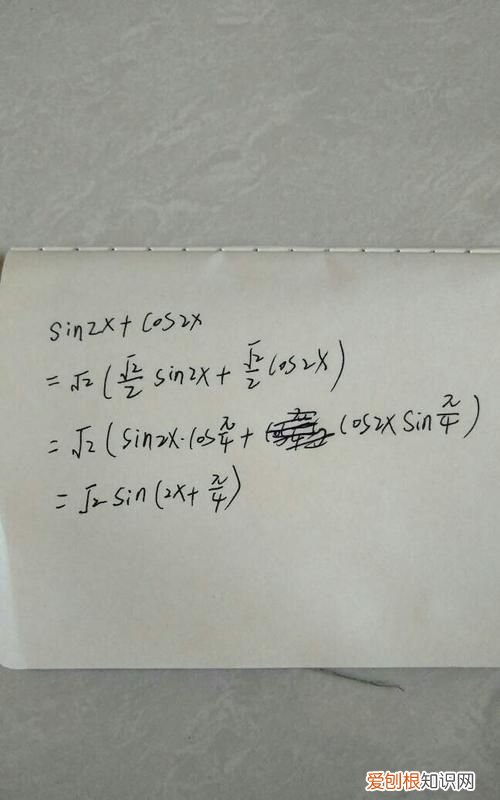 sin2x+cos2x
=√2(√2/2 sin2x+√2/2 cos2x)
=√2(sin2x·cosπ/4+cos2xsinπ/4)
=√2sin(2x+π/4)
爱刨根知识网